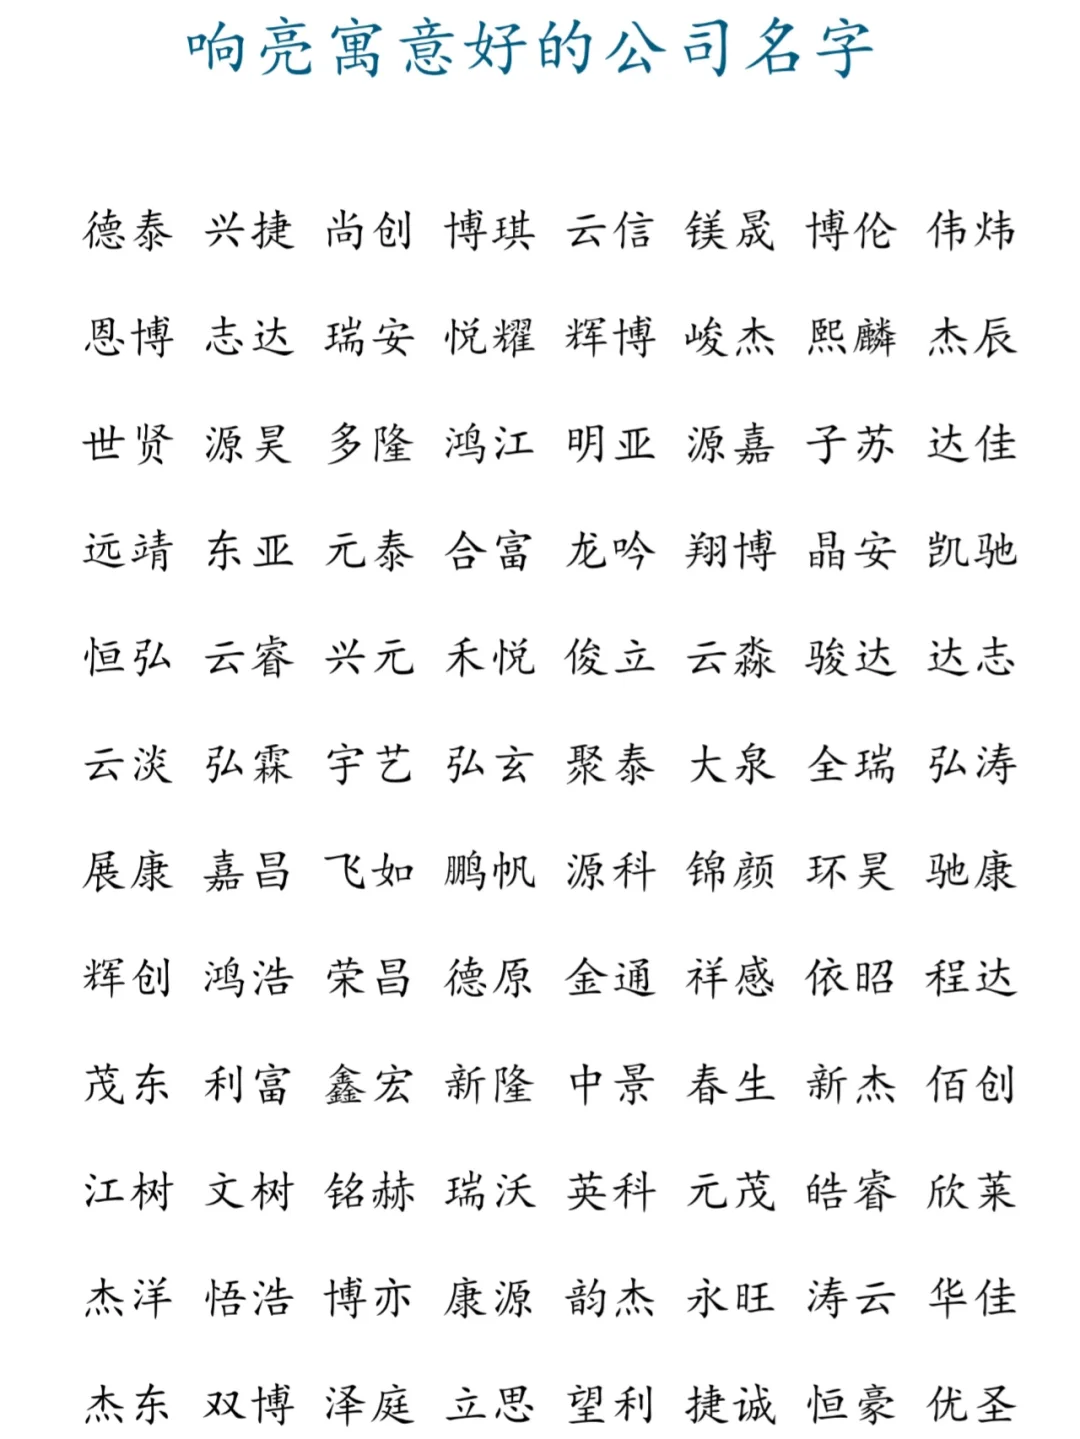 响亮寓意好的公司名字
德泰 兴捷 尚创 博琪 云信 镁晟 博伦 伟炜
恩博 志达 瑞安 悦耀 辉博 峻杰 熙麟 杰辰
世贤 源昊 多隆 鸿江 明亚 源嘉 子苏 达佳
远靖 东亚 元泰 合富 龙吟 翔博 晶安 凯驰
恒弘 云睿 兴元 禾悦 俊立 云淼 骏达 达志
云淡 弘霖 宇艺 弘玄 聚泰 大泉 全瑞 弘涛
展康 嘉昌 飞如 鹏帆 源科 锦颜 环昊 驰康
辉创 鸿浩 荣昌 德原 金通 祥感 依昭 程达
茂东 利富 鑫宏 新隆 中景 春生 新杰 佰创
江树 文树 铭赫 瑞沃 英科 元茂 皓睿 欣莱
杰洋 悟浩 博亦 康源 韵杰 永旺 涛云 华佳
杰东 双博 泽庭 立思 望利 捷诚 恒豪 优圣